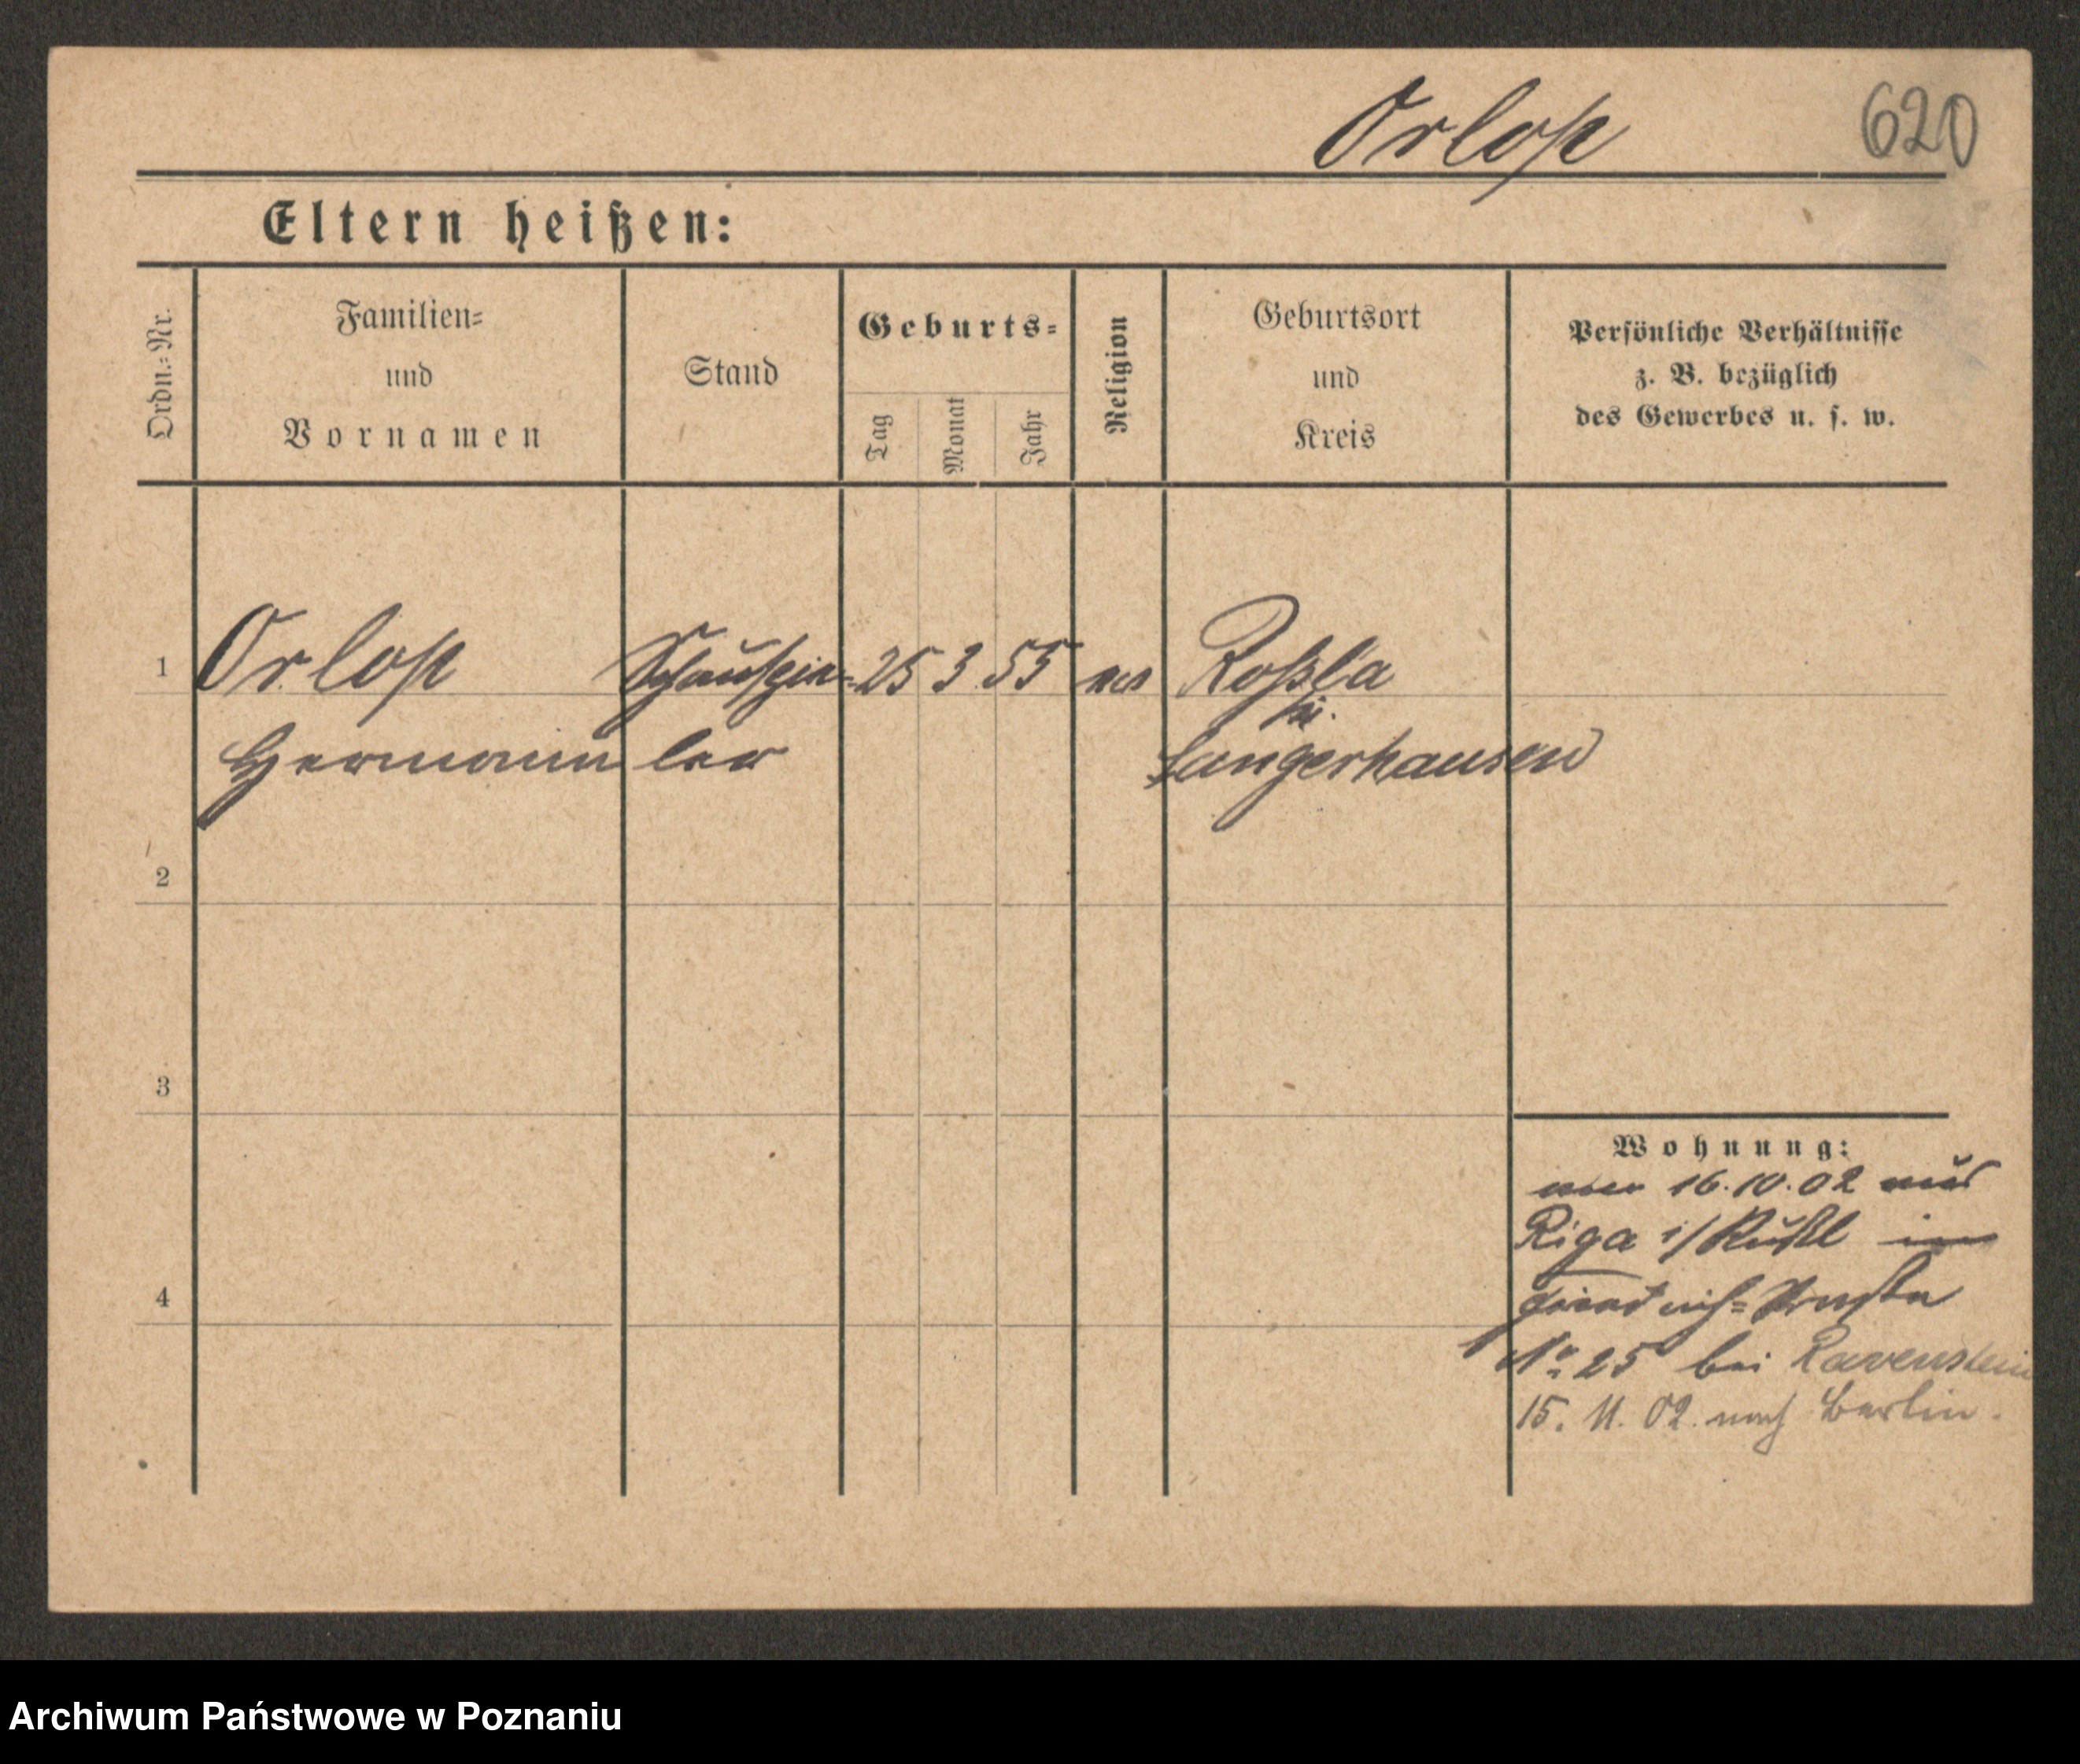 Orlop 620
Eltern heißen:
Ordn.=Nr.
Familien=
und
Vornamen
Stand
Geburts=
Tag
Monat
Jahr
Religion
Geburtsort
und
Kreis
Persönliche Verhältnisse
z. B. bezüglich
des Gewerbes u. s. w.
1 Orlop Schauspie= 25 3 55 Roßla
Hermann ler Sangerhausen
2
3
4
Wohnung:
16.10.02 aus
Riga i/Rußl
No 25 bei Ravenstein
15. 11. 02. nach Berlin.
Archiwum Państwowe w Poznaniu